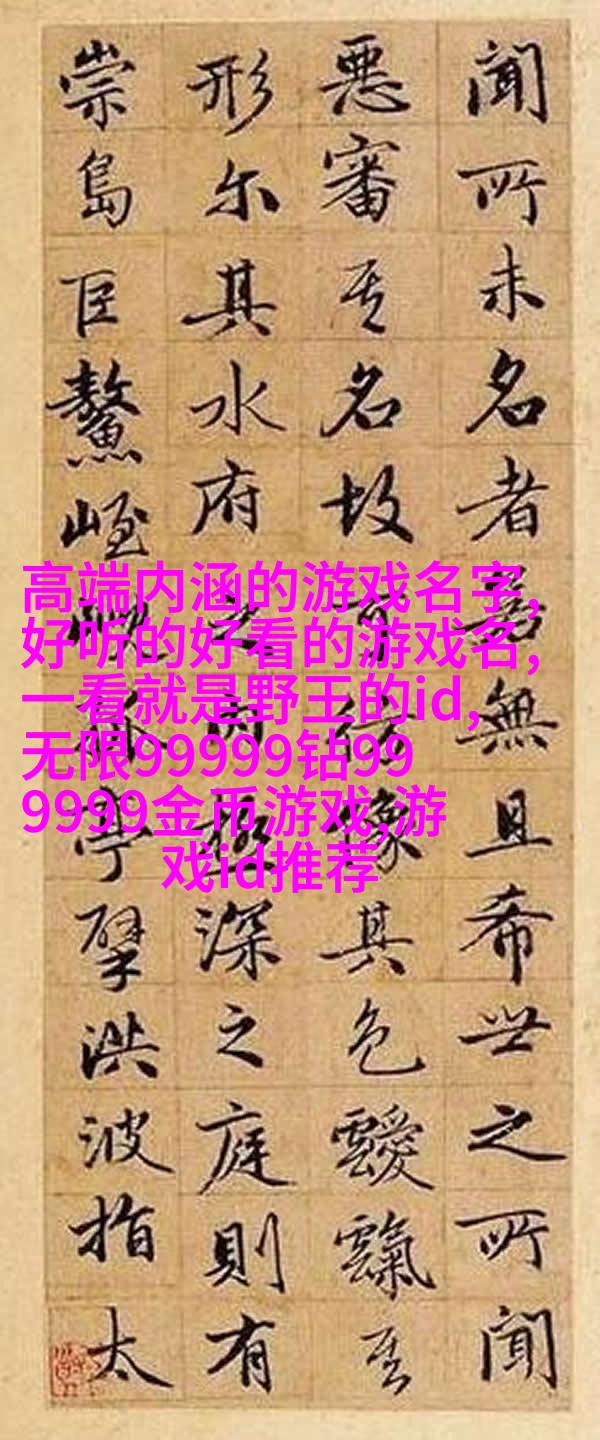 高端内涵的游戏名字,
好听的好看的游戏名,
一看就是野王的id,
无限99999钻99
9999金币游戏,游
戏id推荐
聞所未名者若無且希世之所聞
惡審其名故可仿像其色靉靅其
形尔其水府之内極深之庭則有
崇島巨鰲峌孤亭擘洪波指太